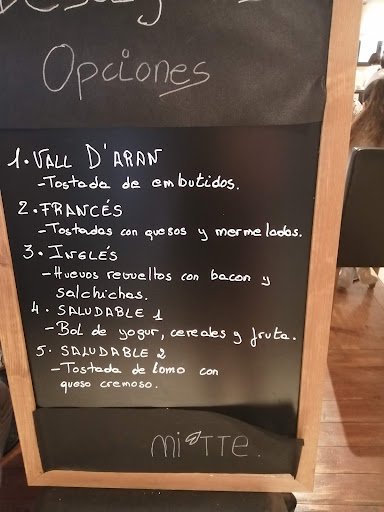 Opciones
1. VALL D'ARAN
- Tostada de embutidos.
2. FRANCÉS
- Tostadas con quesos y mermeladas.
3. INGLÉS
- Huevos revueltos con bacon y
salchichas.
4. SALUDABLE 1
- Bol de yogur, cereales y fruta.
5. SALUDABLE 2
- Tostada de lomo con
queso cremoso.
miette.